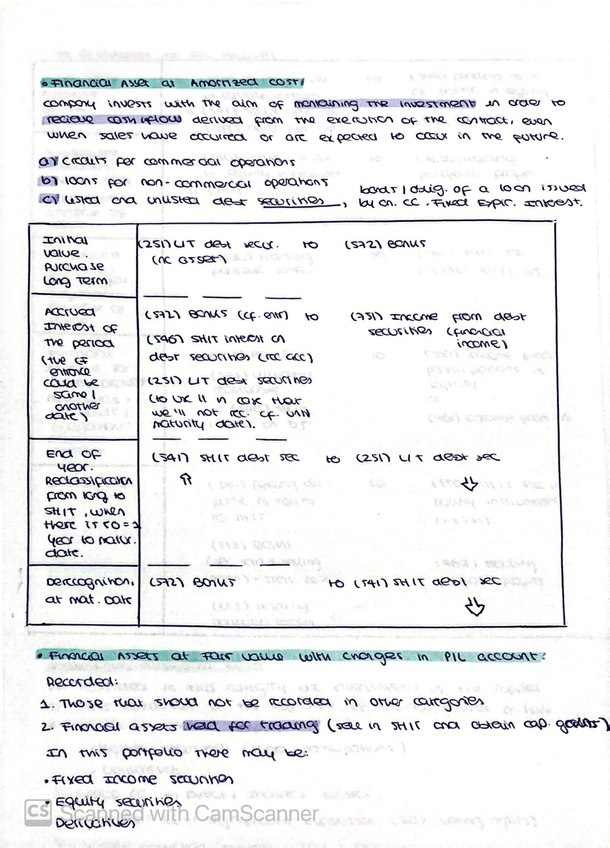 • Financial Asset at Amortized cost:
company invests with the aim of mantaining the investment in order to
recieve cash inflow derived from the execution of the contract, even
when sales have occurred or are expected to occur in the future.
a) credits for commercial operations
b) loans for non-commercial operations
c) listed and unlisted debt securities, bonds / oblig. of a loan issued
by an. CC. Fixed Expir. Interest.
Initial
value.
Purchase
Long Term
(251) L/T debt secur. to (572) Banks
(nc asset)
Accrued
Interest of
the period
(the CF
entrance
could be
same /
another
date)
(572) Banks (cf. entr) to (751) Income from debt
securities (financial
income)
(546) SH/T interest on
debt securities (rec acc)
(251) L/T debt securities
(to use it in case that
we'll not rec. CF. until
maturity date).
End of
year.
Reclassification
from long to
SH/T, when
there is
year to matur.
date.
(541) SH/T debt sec to (251) L/T debt sec
Derecognition,
at mat. date
(572) Banks to (541) SH/T debt sec
• Financial Assets at Fair value with changes in P/L account:
Recorded:
1. Those that should not be recorded in other categories
2. Financial assets held for trading (sale in SH/T and obtain cap. gains)
In this portfolio there may be:
• Fixed Income securities
• Equity securities
Derivatives
CS Scanned with CamScanner